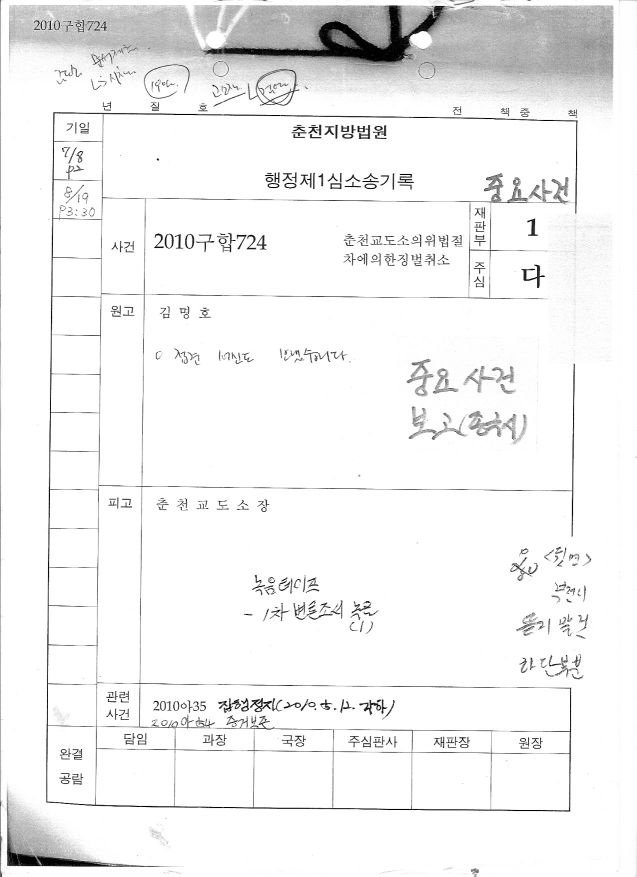 2010구합724
년 질 호
전 책중 책
기일
춘천지방법원
7/8
P2
행정제1심소송기록
중요사건
8/19
P3:30
사건
2010구합724
춘천교도소의위법절
차에의한징벌취소
재판부
1
주심
다
원고
김명호
접견
중요사건
보고(종국시)
피고
춘천교도소장
<뒷면>
녹음테이프
- 1차 변론조서 녹음
(1)
하단부분
관련
사건
2010아35 집행정지(2010. 5. 12. 각하)
2010아34 증거보존
완결
공람
담임
과장
국장
주심판사
재판장
원장